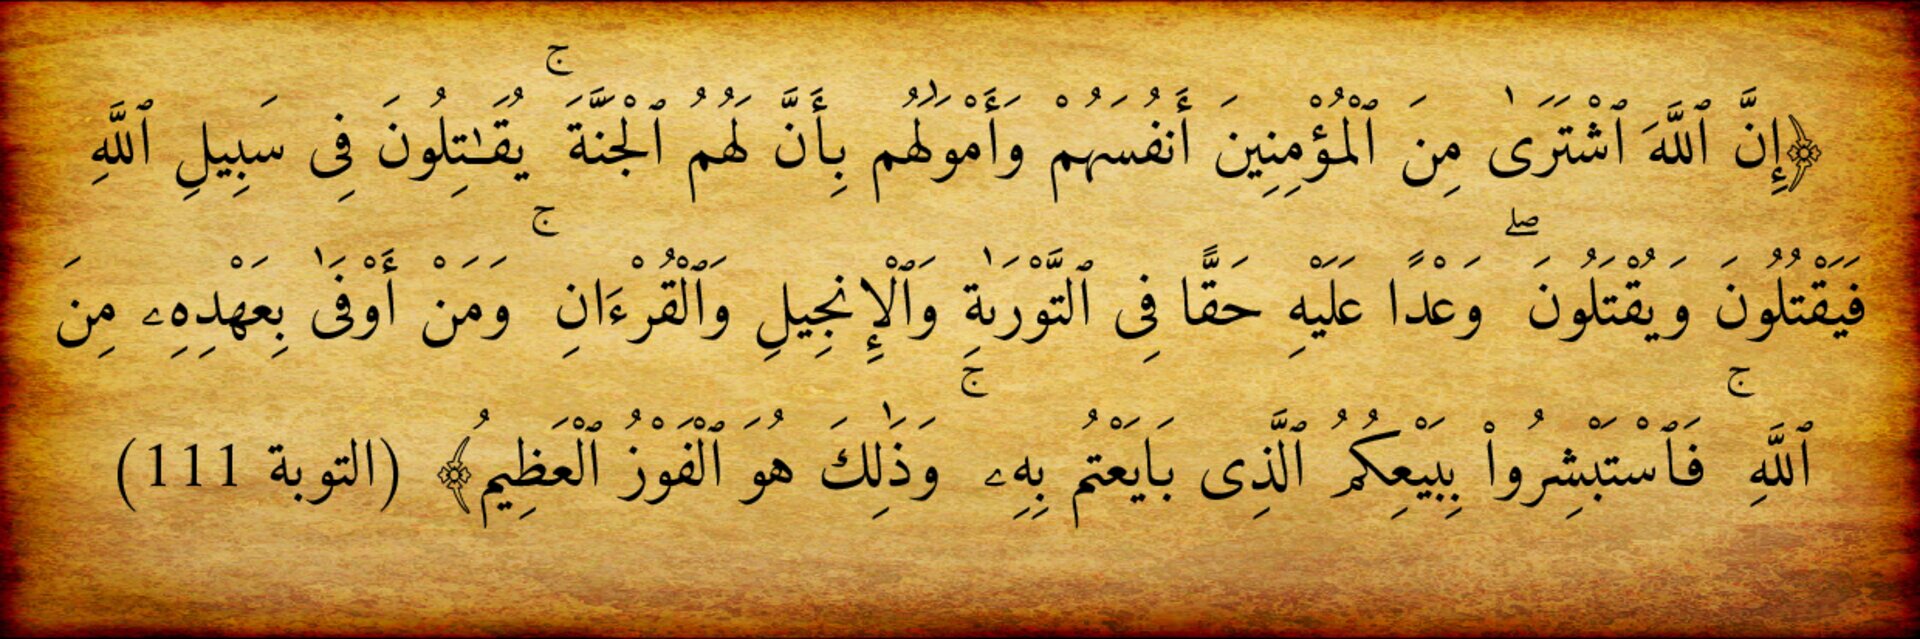 ﴿إِنَّ ٱللَّهَ ٱشْتَرَىٰ مِنَ ٱلْمُؤْمِنِينَ أَنفُسَهُمْ وَأَمْوَٰلَهُم بِأَنَّ لَهُمُ ٱلْجَنَّةَ ۚ يُقَـٰتِلُونَ فِى سَبِيلِ ٱللَّهِ
فَيَقْتُلُونَ وَيُقْتَلُونَ ۖ وَعْدًا عَلَيْهِ حَقًّا فِى ٱلتَّوْرَىٰةِ وَٱلْإِنجِيلِ وَٱلْقُرْءَانِ ۚ وَمَنْ أَوْفَىٰ بِعَهْدِهِۦ مِنَ
ٱللَّهِ ۚ فَٱسْتَبْشِرُوا۟ بِبَيْعِكُمُ ٱلَّذِى بَايَعْتُم بِهِۦ ۚ وَذَٰلِكَ هُوَ ٱلْفَوْزُ ٱلْعَظِيمُ﴾ (التوبة 111)